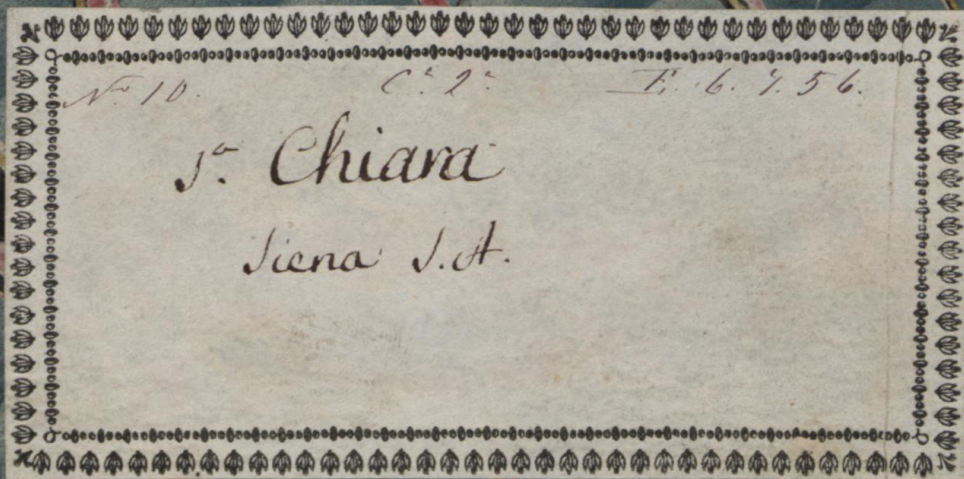 N.º 10. C.ª 2.ª F. 6. 7. 56.
S.ª Chiara
Siena S. A.